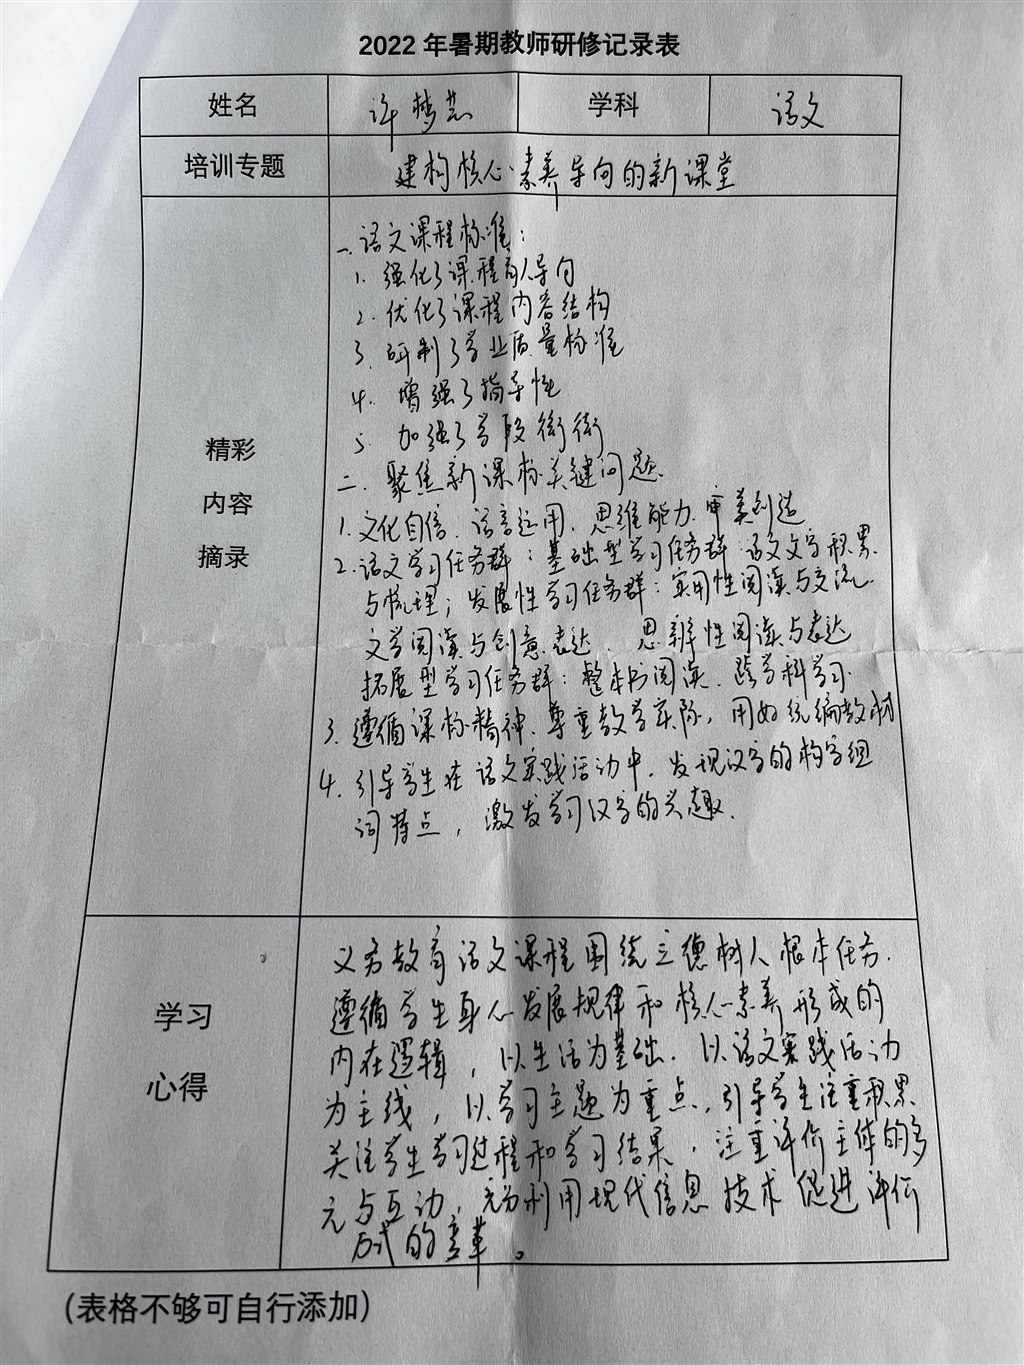 2022 年暑期教师研修记录表
姓名 许梦芸 学科 语文
培训专题 建构核心素养导向的新课堂
精彩
内容
摘录
一、语文课程标准:
1. 强化了课程育人导向
2. 优化了课程内容结构
3. 研制了学业质量标准
4. 增强了指导性
5. 加强了学段衔接
二、聚焦新课标关键问题.
1. 文化自信、语言运用、思维能力、审美创造
2. 语文学习任务群:基础型学习任务群:语文文字积累
与梳理;发展性学习任务群:实用性阅读与交流、
文学阅读与创意表达、思辨性阅读与表达
拓展型学习任务群:整本书阅读、跨学科学习.
3. 遵循课标精神、尊重教学实际,用好统编教材
4. 引导学生在语文实践活动中,发现汉字的构字组
词特点,激发学习汉字的兴趣.
学习
心得
义务教育语文课程围绕立德树人根本任务.
遵循学生身心发展规律和核心素养形成的
内在逻辑,以生活为基础.以语文实践活动
为主线,以学习主题为重点,引导学生注重积累
关注学生学习过程和学习结果,注重评价主体的多
元与互动,充分利用现代信息技术促进评价
方式的变革。
(表格不够可自行添加)